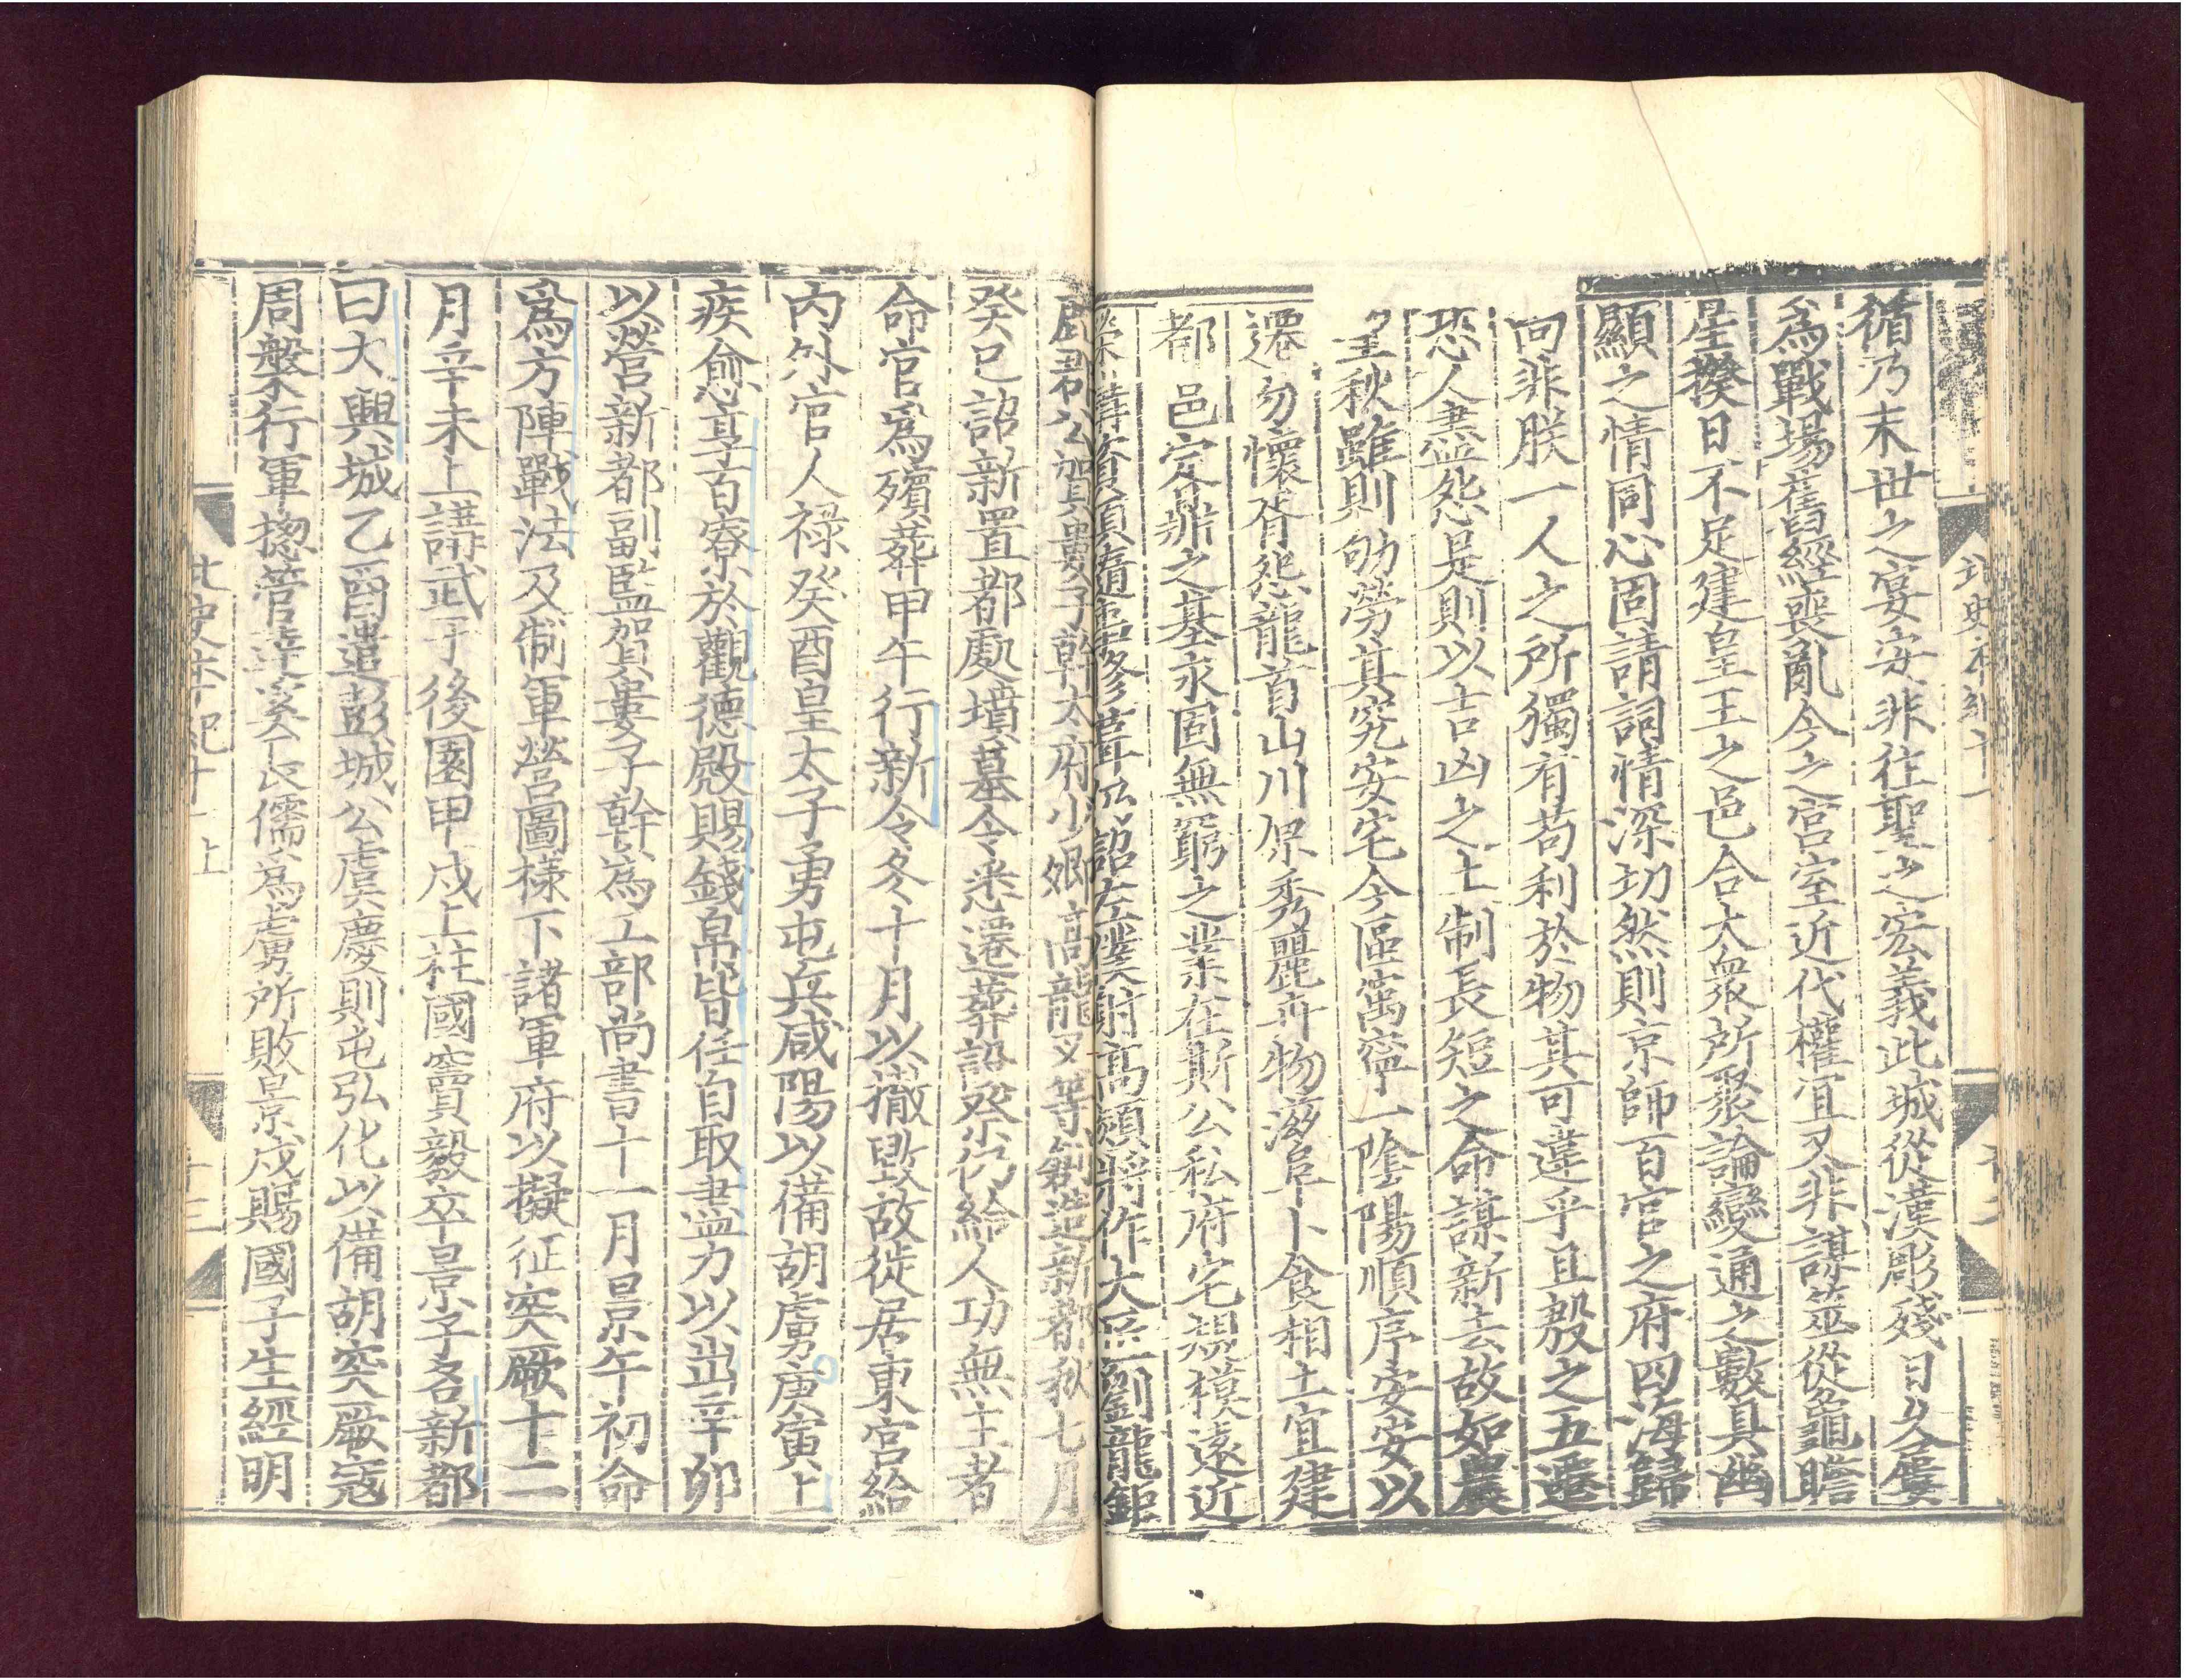 北史本紀十一
循乃末世之宴安非往聖之宏義此城從漢彫殘日久屢
爲戰場舊經喪亂今之宮室近代權宜又非謀筮從龜瞻
星揆日不足建皇王之邑合大衆所聚論變通之數具幽
顯之情同心固請詞情深切然則京師百官之府四海歸
向非朕一人之所獨有苟利於物其可違乎且殷之五遷
恐人盡怨是則以吉凶之土制長短之命謀新去故如農
望秋雖則劬勞其究安宅今區㝢寧一陰陽順序安安以
遷勿懷胥怨龍首山川原秀麗卉物滋阜卜食相土宜建
都邑定鼎之基永固無窮之業在斯公私府宅規模遠近
營構資須隨事條奏仍詔左僕射高熲將作大匠劉龍鉅
鹿郡公賀婁子幹太府少卿高龍叉等創造新都秋七月
癸巳詔新置都處墳墓令悉遷葬設祭仍給人功無主者
命官爲殯葬甲午行新令冬十月以撤毁故徙居東宮給
內外官人祿癸酉皇太子勇屯兵咸陽以備胡虜庚寅上
疾愈享百寮於觀德殿賜錢帛皆任自取盡力以出辛卯
以營新都副監賀婁子幹爲工部尚書十一月景午初命
爲方陣戰法及制軍營圖樣下諸軍府以擬征突厥十二
月辛未上講武于後園甲戍上柱國竇毅卒景子名新都
曰大興城乙酉遣彭城公虞慶則屯弘化以備胡突厥寇
周槃行軍揔管達奚長儒爲虜所敗景戍賜國子生經明
北史本紀十一上
十三